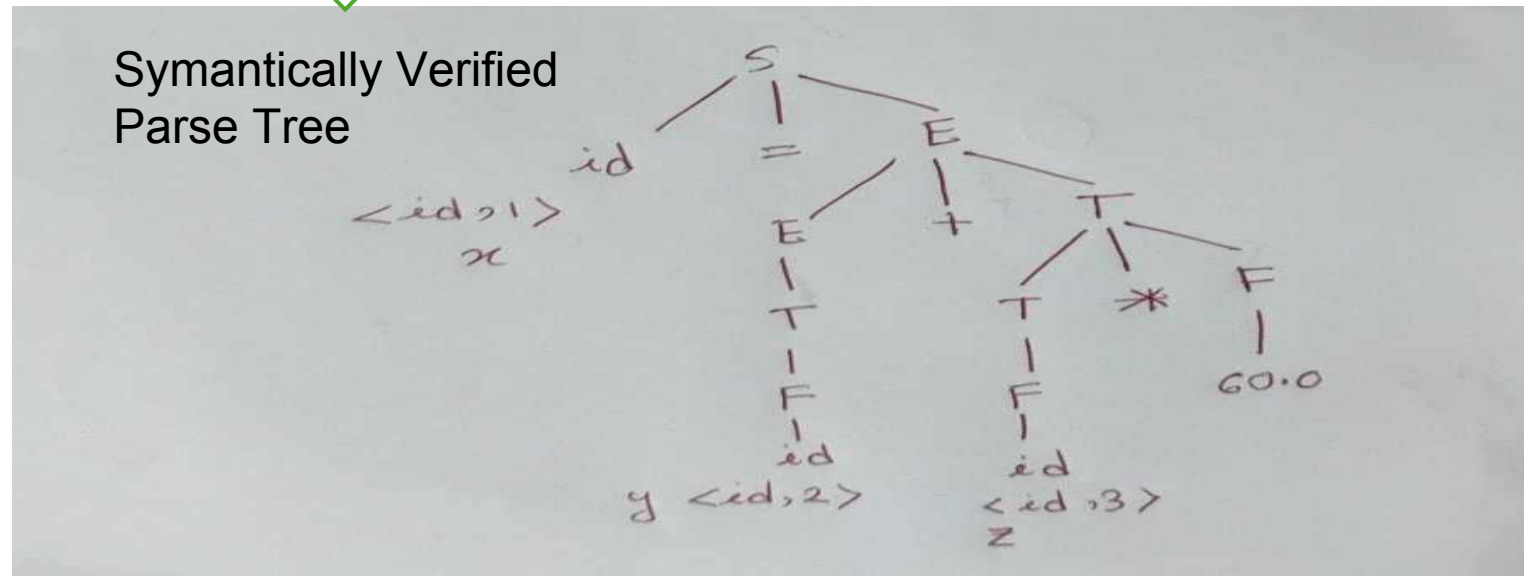 Symantically Verified
Parse Tree
S
id = E
<id,1>
x
E + T
T T * F
F F 60.0
id id
y <id,2> <id,3>
z